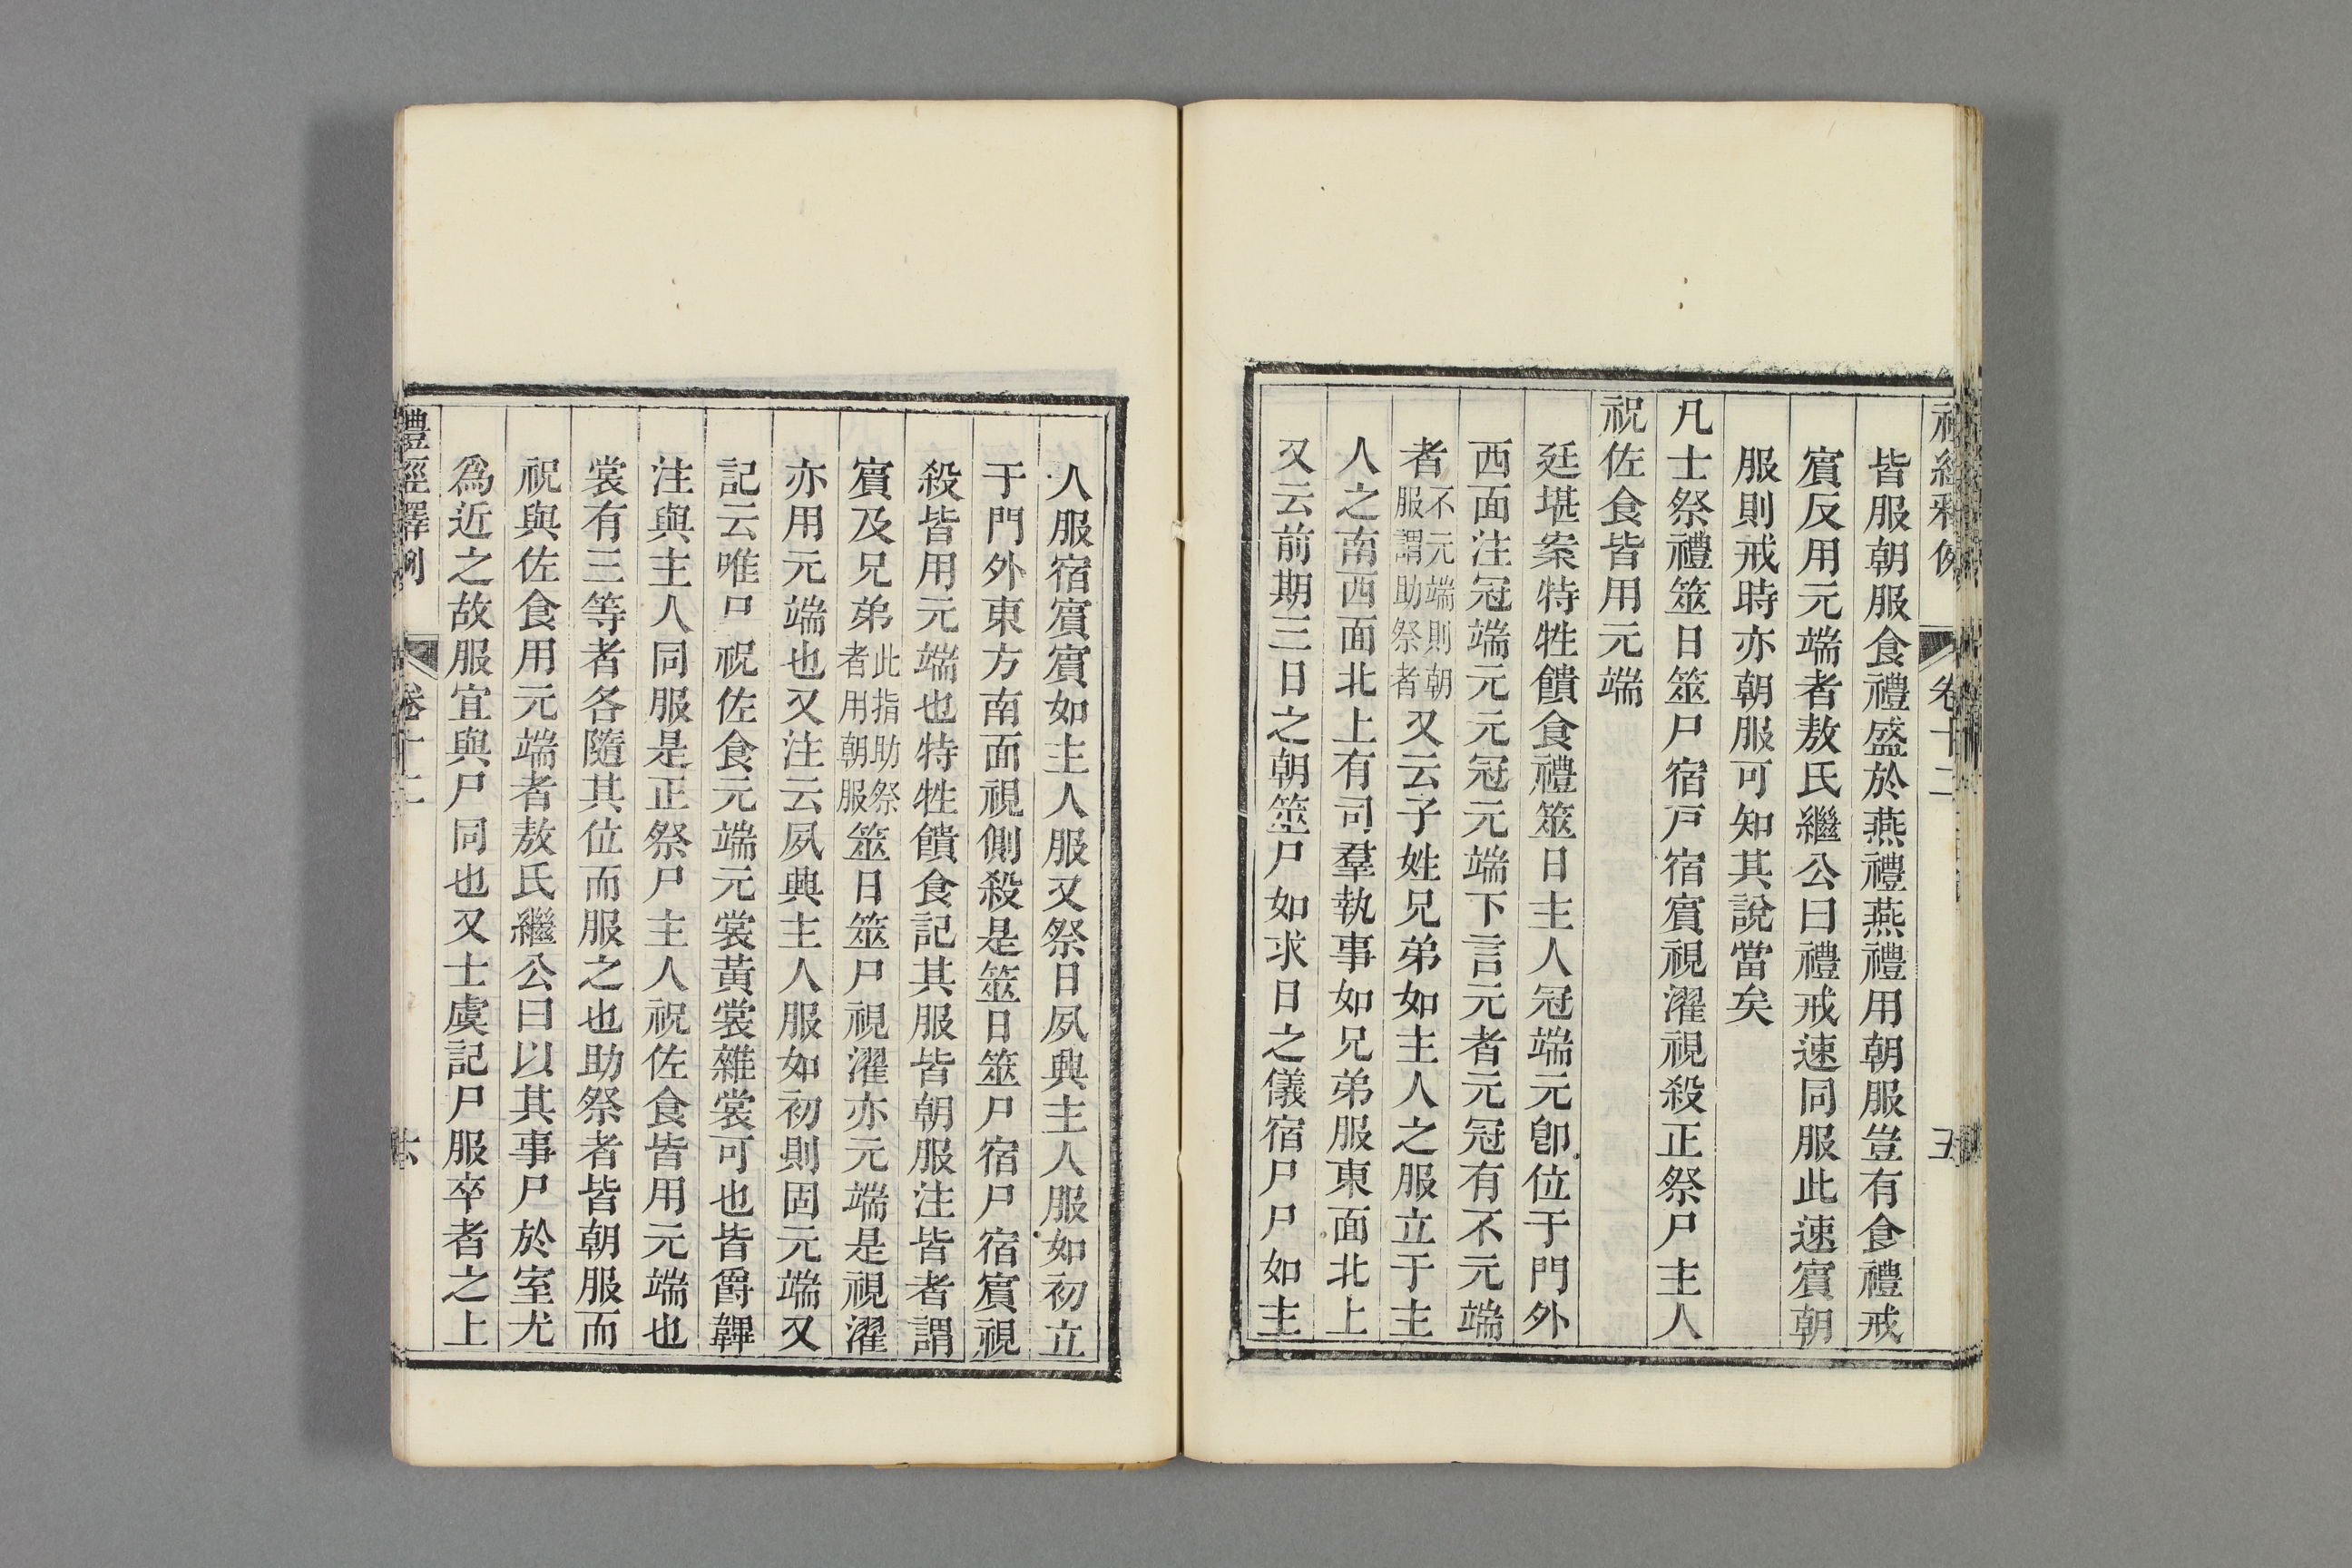 禮經釋例
卷十二
五
皆服朝服食禮盛於燕禮燕禮用朝服豈有食禮戒
賓反用元端者敖氏繼公曰禮戒速同服此速賓朝
服則戒時亦朝服可知其說當矣
凡士祭禮筮日筮尸宿尸宿賓視濯視殺正祭尸主人
祝佐食皆用元端
廷堪案特牲饋食禮筮日主人冠端元卽位于門外
西面注冠端元元冠元端下言元者元冠有不元端
者不元端則朝服謂助祭者又云子姓兄弟如主人之服立于主
人之南西面北上有司羣執事如兄弟服東面北上
又云前期三日之朝筮尸如求日之儀宿尸尸如主
人服宿賓賓如主人服又祭日夙興主人服如初立
于門外東方南面視側殺是筮日筮尸宿尸宿賓視
殺皆用元端也特牲饋食記其服皆朝服注皆者謂
賓及兄弟此指助祭者用朝服筮日筮尸視濯亦元端是視濯
亦用元端也又注云夙興主人服如初則固元端又
記云唯尸祝佐食元端元裳黃裳雜裳可也皆爵韠
注與主人同服是正祭尸主人祝佐食皆用元端也
裳有三等者各隨其位而服之也助祭者皆朝服而
祝與佐食用元端者敖氏繼公曰以其事尸於室尤
爲近之故服宜與尸同也又士虞記尸服卒者之上
禮經釋例
卷十二
六